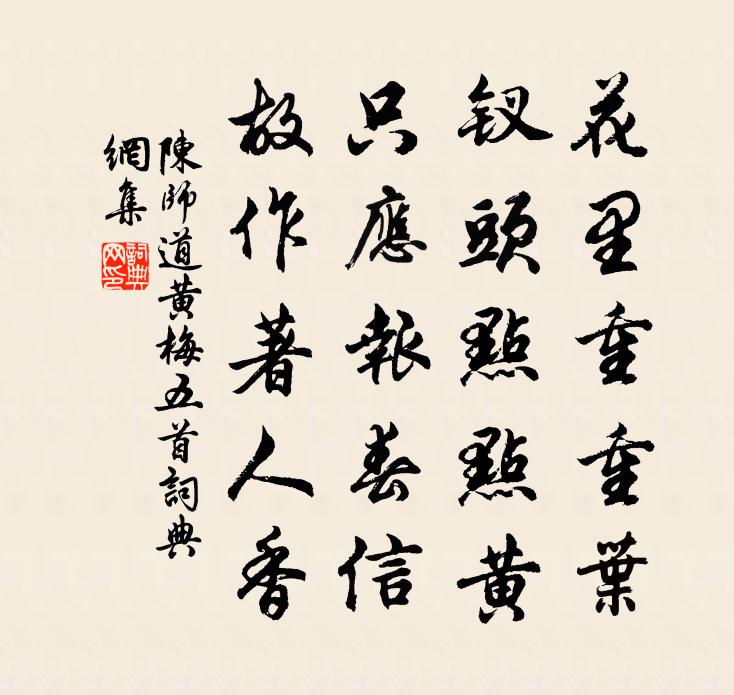 花里重重葉
釵頭點點黃
只應報春信
故作著人香
陳師道黃梅五首詞典
網集
詞典網印